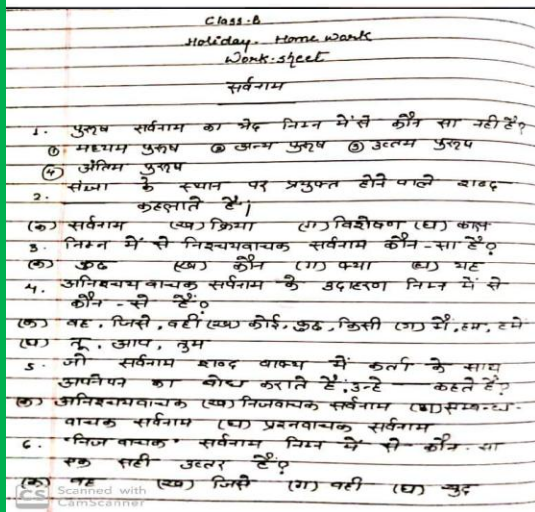 Class-8
Holiday. Home Work
Work-sheet
सर्वनाम
1. पुरुष सर्वनाम का भेद निम्न में से कौन सा नहीं है?
① मध्यम पुरुष ② अन्य पुरुष ③ उत्तम पुरुष
④ अंतिम पुरुष
2. संज्ञा के स्थान पर प्रयुक्त होने वाले शब्द
कहलाते हैं।
(क) सर्वनाम (ख) क्रिया (ग) विशेषण (घ) काल
3. निम्न में से निश्चयवाचक सर्वनाम कौन-सा है?
(क) कुछ (ख) कौन (ग) क्या (घ) यह
4. अनिश्चयवाचक सर्वनाम के उदाहरण निम्न में से
कौन-से हैं?
(क) वह, जिसे, वही (ख) कोई, कुछ, किसी (ग) मैं, हम, हमें
(घ) तू, आप, तुम
5. जो सर्वनाम शब्द वाक्य में कर्ता के साथ
अपनेपन का बोध कराते हैं; उन्हे — कहते हैं?
(क) अनिश्चयवाचक (ख) निजवाचक सर्वनाम (ग) सम्बन्ध-
वाचक सर्वनाम (घ) प्रश्नवाचक सर्वनाम
6. "निज वाचक" सर्वनाम निम्न में से कौन-सा
एक सही उत्तर है?
(क) वह (ख) जिसे (ग) वही (घ) खुद
CS Scanned with
CamScanner